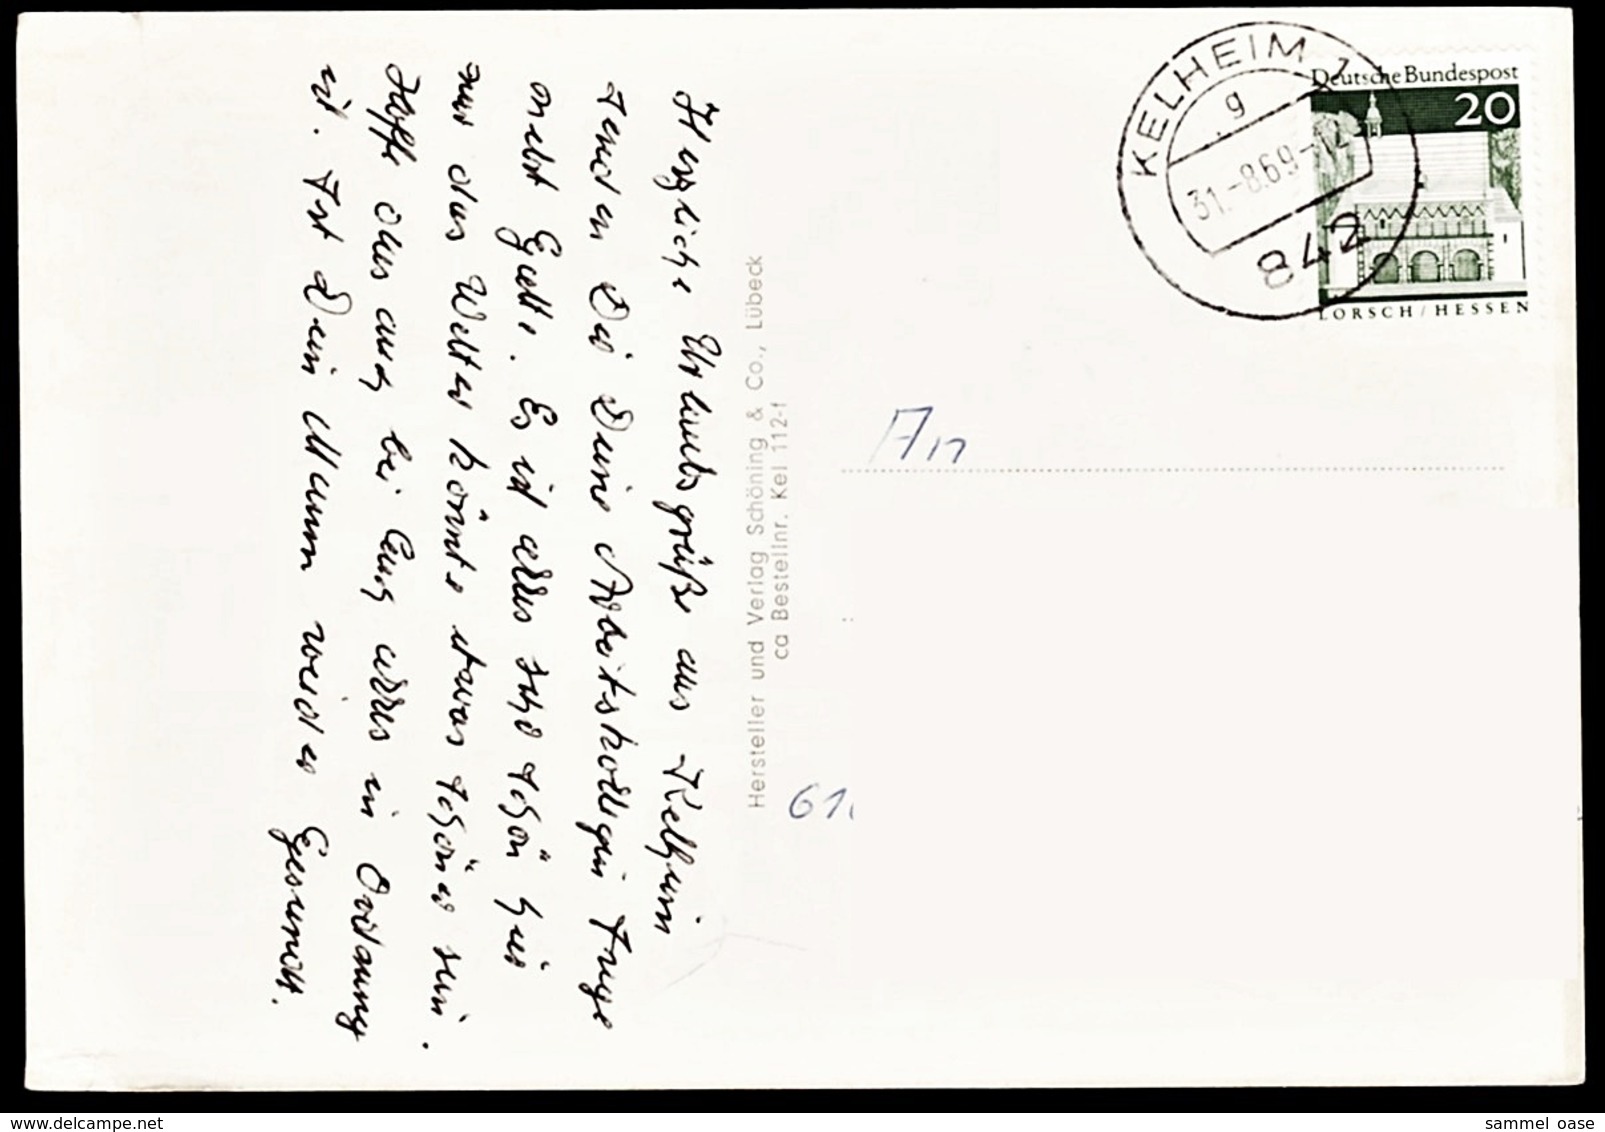 Herzliche Urlaubsgrüße aus Kelheim
senden Dir Deine Arbeitskollegin Inge
nebst Gatte. Es ist alles sehr schön hier
nur das Wetter könnte etwas schöner sein.
Hoffe das auch bei Euch alles in Ordnung
ist. Ist Dein Mann wieder Gesund.
Hersteller und Verlag Schöning & Co., Lübeck
ca Bestellnr. Kel 112-f
KELHEIM 1
g
31.-8.69-12
842
Deutsche Bundespost
20
LORSCH/HESSEN
An
61
www.delcampe.net
sammel_oase